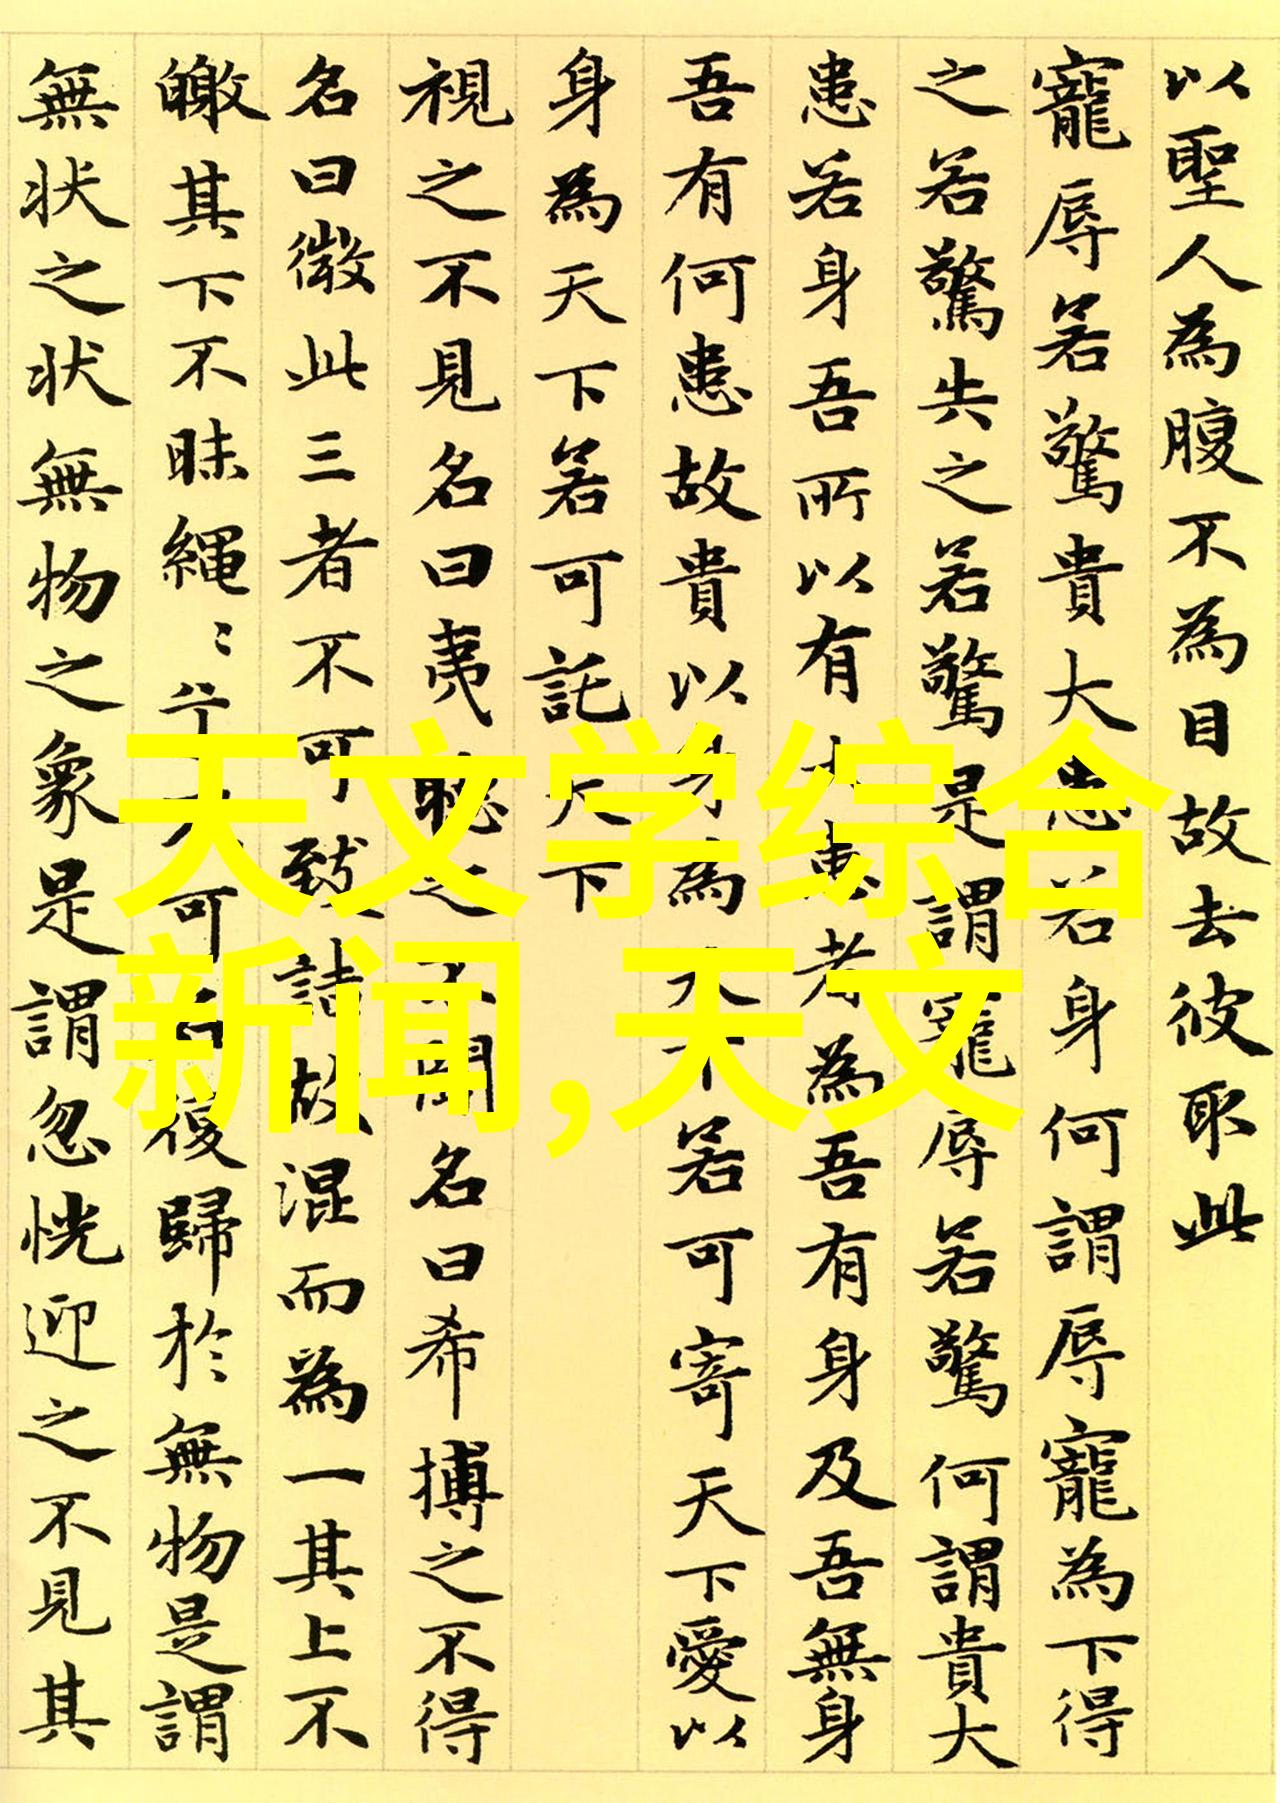 以聖人為腹不為目故去彼取此
寵辱若驚貴大患若身何謂辱寵為下得
之若驚失之若驚是謂寵辱若驚何謂貴大
患若身吾所以有大患者為吾有身及吾無身
吾有何患故貴以身為天下若可寄天下愛以
身為天下若可託天下
視之不見名曰夷聽之不聞名曰希搏之不得
名曰微此三者不可致詰故混而為一其上不
皦其下不昧繩〻兮不可名復歸於無物是謂
無状之状無物之象是謂忽恍迎之不見其
天文学综合
新闻,天文